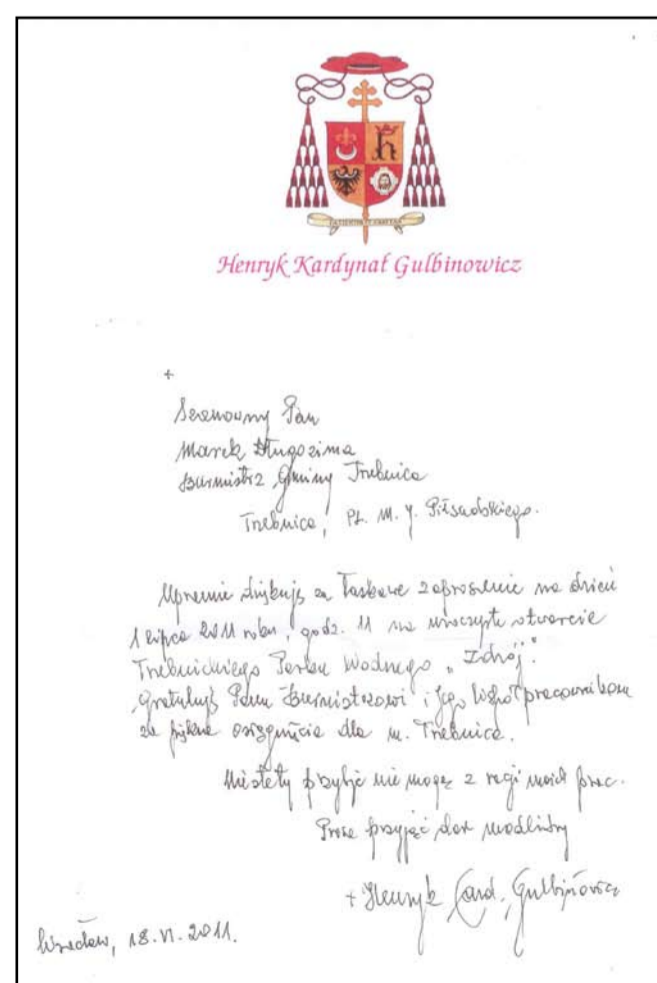 Henryk Kardynał Gulbinowicz
+
Szanowny Pan
Marek Długozima
Burmistrz Gminy Trebnica
Trebnica, Pl. M. J. Piłsudskiego.
Uprzejmie dziękuję za łaskawe zaproszenie na dzień
1 lipca 2011 roku, godz. 11 na uroczyste otwarcie
Trebnickiego Parku Wodnego „Zdrój".
Gratuluję Panu Burmistrzowi i Jego Współpracownikom
za piękne osiągnięcia dla m. Trebnica.
Niestety przybyć nie mogę z racji moich prac.
Proszę przyjąć dar modlitwy
+ Henryk Card. Gulbinowicz
Wrocław, 18.VI.2011.